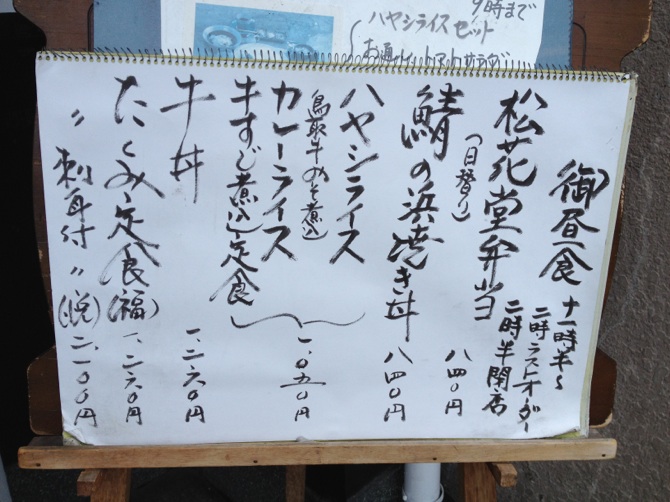 9時まで
ハヤシライスセット
御昼食
十一時半〜
二時ラストオーダー
二時半閉店
松花堂弁当
(日替り)
八四〇円
鯖の浜焼き丼
八四〇円
ハヤシライス
鳥取牛みそ煮込
カレーライス
牛すじ煮込定食
一、〇五〇円
牛丼
一、二六〇円
たくみ定食(福)
一、二六〇円
〃刺身付〃(悦)
二、一〇〇円